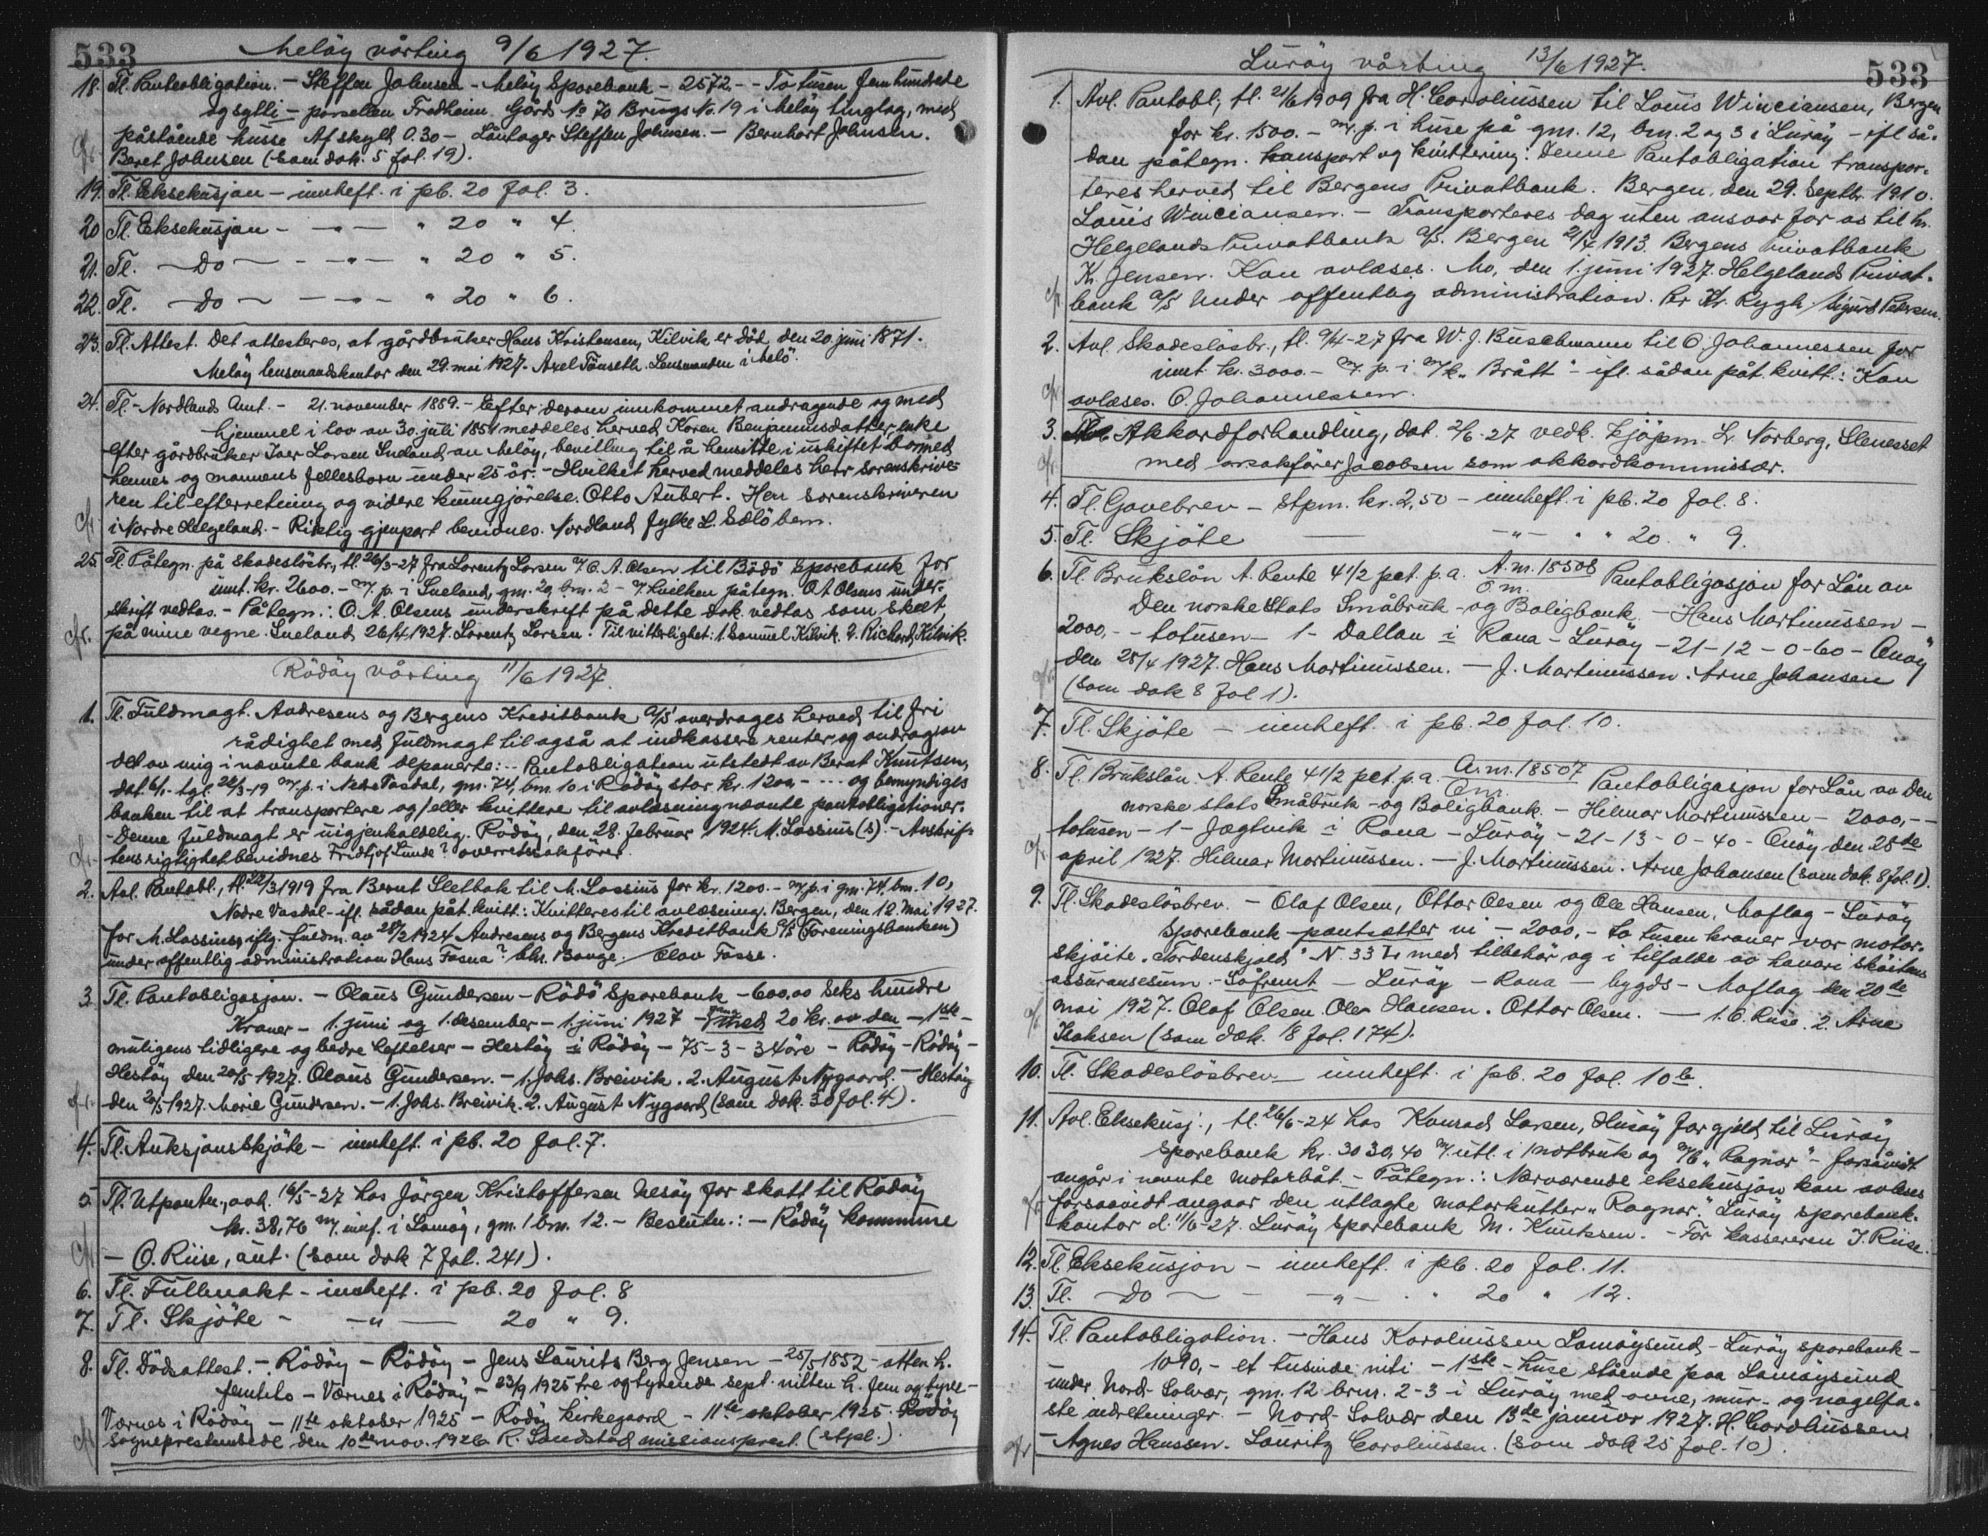 533
Meløy vårting 9/6 1927.
18. Tl. Pantobligation. - Steffen Johnsen - Meløy Sparebank - 2572 - - To tusen femhundrede
og sytti - parsellen Fredheim Gårds No 70 Brugs No. 19 i Meløy tinglag, med
påstående husse Af skyld 0.30 - Låntager Steffen Johnsen. - Bernhart Johnsen.
Beret Johnsen (som dok. 5 fol. 19).
19. Tl. Eksekusjon - innheft. i pb. 20 fol. 3.
20 Tl. Eksekusjon - - " - " 20 " 4.
21. Tl. - Do - - " - " 20 " 5.
22. Tl. - Do - - " - " 20 " 6.
23. Tl. Attest. Det attesteres, at gårdbruker Hans Kristensen, Kilvik er død den 20. juni 1871.
Meløy lensmandskontor den 29. mai 1927. Axel Tønseth. Lensmanden i Melø.
24. Tl. - Nordlands Amt. - 21. november 1889. - Efter derom innkommet andragende og med
hjemmel i lov av 30. juli 1851 meddeles herved Karen Benjaminsdatter, enke
efter gårdbruker Iver Larsen Ineland av Meløy, bevilling til å hensitte i uskiftet bo med
hennes og mannens fellesbarn under 25 år. - Hvilket herved meddeles herr sorenskrive-
ren til efterretning og videre kunngjørelse. Otto Aubert. Herr sorenskriveren
i Nordre Helgeland. - Riktig gjenpart bevidnes. Nordland fylke L. Sæløbem.
25. Tl. Påtegn. på skadesløsbr., tl. 26/3-27 fra Lorentz Larsen m/ O. A. Olsen til Bodø Sparebank for
innt. kr. 2600. - m. p. i Ineland, gm. 29 bm. 2 - if. hvilken påtegn. O A Olsens under-
skrift vedtas. - Påtegn.: O. A. Olsens underskrift på dette dok. vedtas som skeet
på mine vegne. Ineland 26/4 1927. Lorentz Larsen. Til vitterlighet: 1. Samuel Kilvik. 2. Richard Kilvik.
Rødøy vårting 11/6 1927.
1. Tl. Fuldmagt. Andresens og Bergens Kreditbank A/S overdrages herved til fri
rådighet med fuldmagt til også at indkassere renter og avdrag av
det av mig i nævnte bank deponerte: - Pantobligation utstedt av Bernt Knutsen,
dat. 6/1 - tgl. 28/3-19 m. p. i Nedre Vasdal, gm. 74, bm. 10 i Rødøy stor kr. 1200 - ... og bemyndiges
banken til at transportere og/eller kvittere til avlæsning nævnte pantobligationer.
- Denne fuldmagt er uigjenkaldelig. Rødøy, den 28. februar 1924. M. Lossius (s). - Avskrif-
tens rigtighet bevidnes Fridtjof Lunde? overretssakfører.
2. Avl. Pantobl., tl. 28/3 1919 fra Bernt Sletbak til M. Lossius for kr. 1200. - m. p. i gm. 74, bm. 10,
Nedre Vasdal - ifl. sådan påt. kvitt.: Kvitteres til avlæsning. Bergen, den 12. mai 1927.
for M. Lossius, iflg. fuldm. av 28/2 1924 Andresens og Bergens Kreditbank A/S (Foreningsbanken)
under offentlig administration Hans Fasna? Chr. Bauge. / Olav Fosse.
3. Tl. Pantobligasjon. - Olaus Gundersen - Rødø Sparebank - 600,00 Seks hundre
Kroner - 1. juni og 1. desember - 1. juni 1927 - med 20 kr. av den - 1ste -
muligens tidligere og bedre heftelser - Hestøy i Rødøy - 75 - 3 - 34 øre - Rødøy - Rødøy -
Hestøy den 20/5 1927. Olaus Gundersen. - 1. Johs. Breivik. 2. August Nygaard. - Hestøy
den 20/5 1927. Marie Gundersen. - 1. Johs. Breivik. 2. August Nygaard (som dok. 30 fol. 4).
4. Tl. Auksjonsskjøte - innheft. i pb. 20 fol. 7.
5. Tl. Utpantn., avh. 16/5-27 hos Jørgen Kristoffersen Nesøy for skatt til Rødøy
kr. 38,76 m/ innf. i Lamøy, gm. 1 bm. 12. - Beslutn.: - Rødøy kommune
- O. Riise, aut. (som dok 7 fol. 241).
6. Tl. Fullmakt - innheft. i pb. 20 fol. 8
7. Tl. Skjøte - - " - 20 " 9.
8. Tl. Dødsattest. - Rødøy - Rødøy - Jens Laurits Berg Jensen - 25/5 1852 - atten h.
femtito - Værnes i Rødøy - 23/9 1925 tre og tyvende sept. nitten h. fem og tyve -
Værnes i Rødøy - 11te oktober 1925 - Rødøy kirkegaard - 11te oktober 1925. Rødøy
sogneprestembede den 10de nov. 1926. R. Sandstad misionsprest. (stpl.).
533
Lurøy vårting 13/6 1927.
1. Avl. Pantobl, tl. 21/6 1909 fra H. Carolinssen til Louis Winciansen, Bergen
for kr. 1500. - m. p. i huse på gm. 12, bm. 2 og 3 i Lurøy - ifl. så-
dan påtegn. transport og kvittering: Denne Pantobligation transpor-
teres herved til Bergens Privatbank. Bergen, den 29. Septbr. 1910.
Louis Winciansen. - Transporteres dag uten ansvar for os til hr.
Helgelands Privatbank A/S. Bergen 21/4 1913. Bergens Privatbank
K. Jensen. Kan avlæses. Mo, den 1. juni 1927. Helgelands Privat-
bank A/S Under offentlig administration. Pr. Kr. Rygh / Sigurd Pedersen.
2. Avl. Skadesløsbr., tl. 9/4-27 fra W. J. Buschmann til O. Johannessen for
innt. kr. 3000. - m. p. i m/k. "Brått" - ifl. sådan påt. kvitt.: Kan
avlæses. O. Johannessen.
3. Akkordforhandling, dat. 2/6-27 vedk. kjøpm. Lr. Norberg, Slenesset
med orsakfører Jacobsen som akkordkommissær.
4. Tl. Gavebrev - stpm. kr. 2,50 - innheft. i pb. 20 fol. 8.
5. Tl. Skjøte - " - " " 20. " 9.
6. Tl. Brukslån A. Rente 4 1/2 pct. p. a. A. m. 18508 Ö m. Pantobligasjon for Lån av
Den norske Stats Småbruk - og Boligbank. - Hans Martinussen -
2000, - - totusen - 1 - Dallan i Rana - Lurøy - 21 - 12 - 0 - 60 - Qnøy
den 28/4 1927. Hans Martinussen. - J. Martinussen. Arne Johansen
(som dok 8 fol 1).
7. Tl. Skjøte - innheft. i pb. 20 fol. 10.
8. Tl. Brukslån A. Rente 4 1/2 pct. p. a. A. m. 18507 Ö m. Pantobligasjon for Lån av Den
norske stats Småbruk - og Boligbank. - Helmar Martinussen - 2000, - -
totusen - 1 - Jægtvik i Rana - Lurøy - 21 - 13 - 0 - 40 - Qnøy den 28de
april 1927. Hilmar Martinussen. - J. Martinussen. Arne Johansen (som dok. 8 fol. 1).
9. Tl. Skadesløsbrev. - Olaf Olsen, Ottar Olsen og Ole Hansen, Moflag - Lurøy
Sparebank - pantsætter vi - 2000. - to tusen kroner vor motor-
skjøite "Tordenskjold" N. 33 L. med tilbehør og i tilfælde av havari skøitens
assuransesum. - Såfremt - Lurøy - Rana - bygds - Moflag den 20de
mai 1927. Olaf Olsen Ole Hansen. Ottar Olsen. - 1. O. Riise. 2. Arne
Isaksen (som dok. 18 fol. 174).
10. Tl. Skadesløsbrev - innheft. i pb. 20 fol. 10 b.
11. Avl. Eksekusj., tl. 26/6-24 hos Konrad Larsen, Husøy for gjeld til Lurøy
Sparebank kr. 3030,40 m/ utl. i 1 notbruk og m/b "Ragnar" - forsåvidt
angår i nevnte motorbåt. - Påtegn.: Nærværende eksekusjon kan avleses
forsaavidt angaar den utlagte motorkutter "Ragnar". Lurøy sparebank-
kontor d. 11/6-27. Lurøy Sparebank M. Knutssen. - For kassereren J. Riise.
12. Tl. Eksekusjon - innheft. i pb. 20 fol. 11.
13 Tl. - Do - - " - " 20 " 12.
14. Tl. Pantobligation. - Hans Karolinssen Lamøysund - Lurøy sparebank -
1090, - et tusinde niti - 1ste - huse stående paa Lamøysund
under Nord - Solvær, gm. 12 brm. 2-3 i Lurøy med ovne, mur - og nagelfa-
ste indretninger - Nord - Solvær den 13de januar 1927. H. Carolinssen
- Agnes Hanssen. Lauritz Carolinssen. (som dok 25 fol. 10).